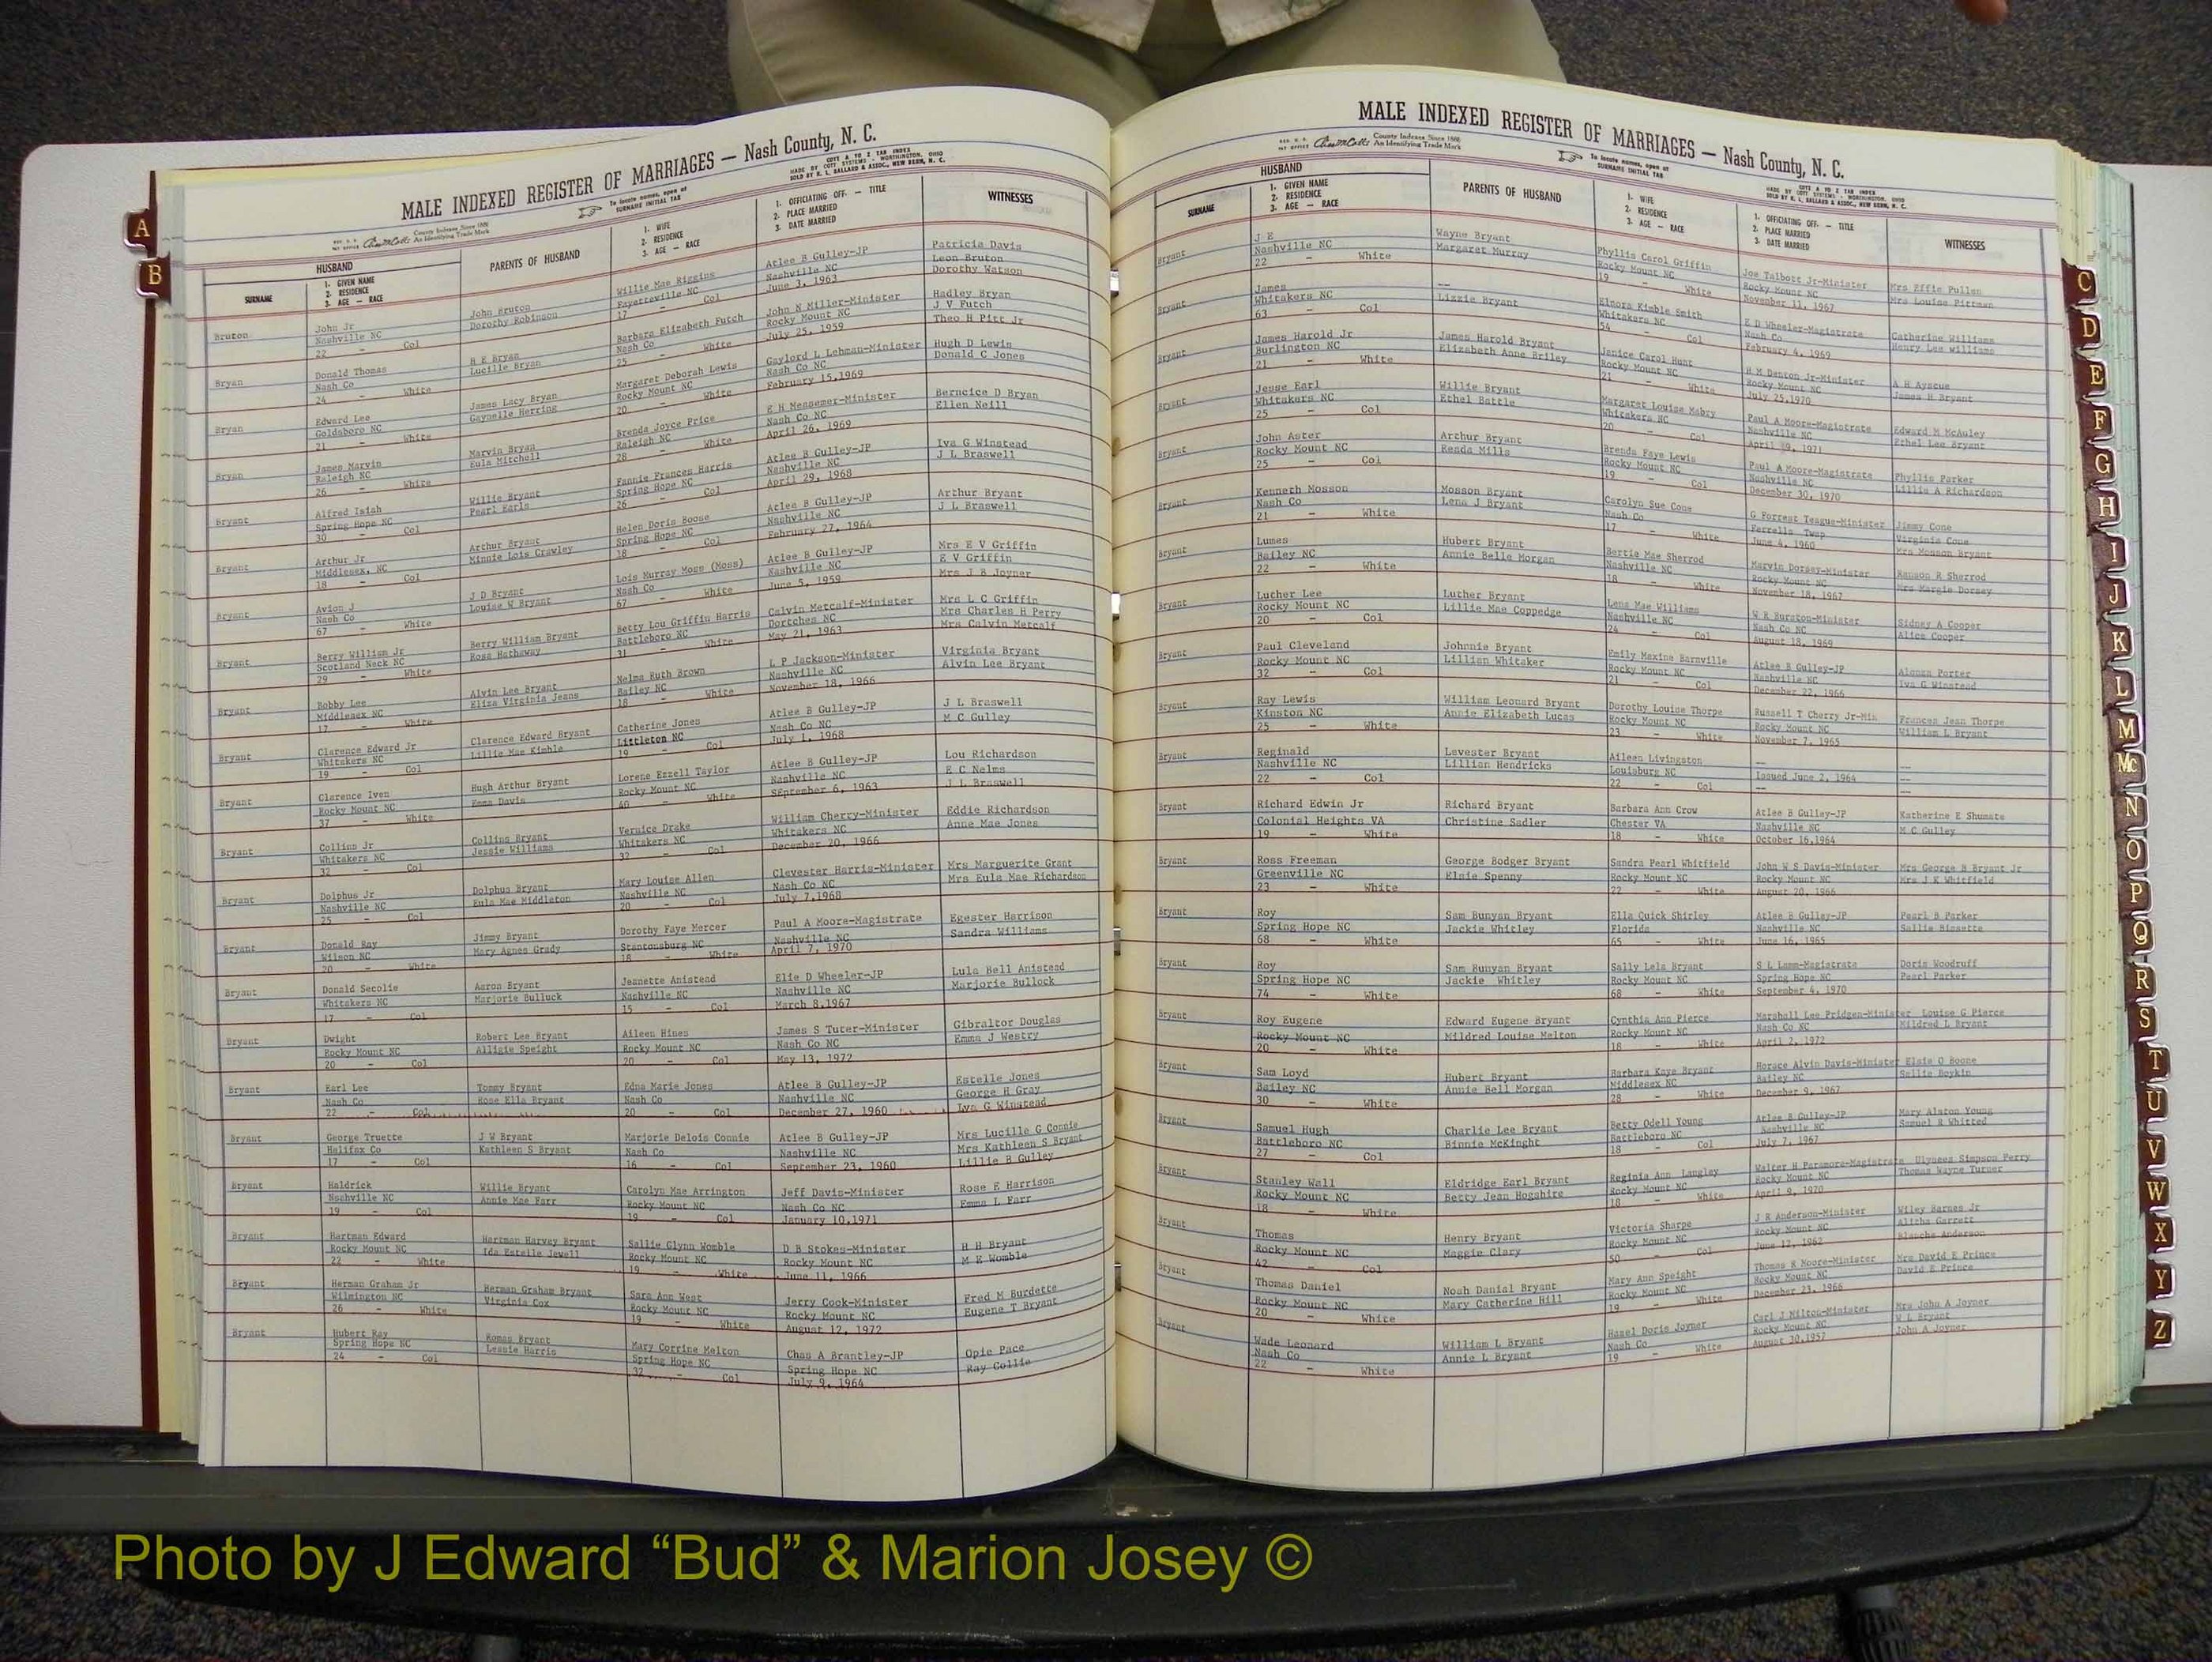 MALE INDEXED REGISTER OF MARRIAGES — Nash County, N. C.
County Indexes Since 1888
An Identifying Trade Mark
To locate names, open at
SURNAME INITIAL TAB
COTT A TO Z TAB INDEX
MADE BY COTT SYSTEMS - WORTHINGTON, OHIO
SOLD BY K. L. BALLARD & ASSOC., NEW BERN, N. C.
HUSBAND
SURNAME
1. GIVEN NAME
2. RESIDENCE
3. AGE — RACE
PARENTS OF HUSBAND
1. WIFE
2. RESIDENCE
3. AGE — RACE
1. OFFICIATING OFF. - TITLE
2. PLACE MARRIED
3. DATE MARRIED
WITNESSES
Bruton John Jr John Bruton Willie Mae Riggins Atlee B Gulley-JP Patricia Davis
Nashville NC Dorothy Robinson Fayetteville NC Nashville NC Leon Bruton
22 - Col 17 - Col June 3, 1963 Dorothy Watson
Bryan Donald Thomas H E Bryan Barbara Elizabeth Futch John N Miller-Minister Hadley Bryan
Nash Co Lucille Bryan Nash Co Rocky Mount NC J V Futch
24 - White 25 - White July 25, 1959 Theo H Pitt Jr
Bryan Edward Lee James Lacy Bryan Margaret Deborah Lewis Gaylord L Lehman-Minister Hugh D Lewis
Goldsboro NC Gaynelle Herring Rocky Mount NC Nash Co NC Donald C Jones
21 - White 20 - White February 15,1969
Bryan James Marvin Marvin Bryan Brenda Joyce Price E H Messemer-Minister Berncice D Bryan
Raleigh NC Eula Mitchell Raleigh NC Nash Co NC Ellen Neill
26 - White 28 - White April 26, 1969
Bryant Alfred Isiah Willie Bryant Fannie Frances Harris Atlee B Gulley-JP Iva G Winstead
Spring Hope NC Pearl Earls Spring Hope NC Nashville NC J L Braswell
30 - Col 26 - Col April 29, 1968
Bryant Arthur Jr Arthur Bryant Helen Doris Boose Atlee B Gulley-JP Arthur Bryant
Middlesex, NC Minnie Lois Crawley Spring Hope NC Nashville NC J L Braswell
18 - Col 18 - Col February 27, 1964
Bryant Avion J J D Bryant Lois Murray Moss (Moss) Atlee B Gulley-JP Mrs E V Griffin
Nash Co Louise W Bryant Nash Co Nashville NC E V Griffin
67 - White 67 - White June 5, 1959 Mrs J B Joyner
Bryant Berry William Jr Berry William Bryant Betty Lou Griffin Harris Calvin Metcalf-Minister Mrs L C Griffin
Scotland Neck NC Rosa Hathaway Battleboro NC Dortches NC Mrs Charles H Perry
29 - White 31 - White May 21, 1963 Mrs Calvin Metcalf
Bryant Bobby Lee Alvin Lee Bryant Nelma Ruth Brown L P Jackson-Minister Virginia Bryant
Middlesex NC Eliza Virginia Jeans Bailey NC Nashville NC Alvin Lee Bryant
17 - White 18 - White November 18, 1966
Bryant Clarence Edward Jr Clarence Edward Bryant Catherine Jones Atlee B Gulley-JP J L Braswell
Whitakers NC Lillie Mae Kimble Littleton NC Nash Co NC M C Gulley
19 - Col 19 - Col July 1, 1968
Bryant Clarence Iven Hugh Arthur Bryant Lorene Ezzell Taylor Atlee B Gulley-JP Lou Richardson
Rocky Mount NC Emma Davis Rocky Mount NC Nashville NC E C Nelms
37 - White 40 - White SEptember 6, 1963 J L Braswell
Bryant Collins Jr Collins Bryant Vernice Drake William Cherry-Minister Eddie Richardson
Whitakers NC Jessie Williams Whitakers NC Whitakers NC Anne Mae Jones
32 - Col 32 - Col December 20, 1966
Bryant Dolphus Jr Dolphus Bryant Mary Louise Allen Clevester Harris-Minister Mrs Marguerite Grant
Nashville NC Eula Mae Middleton Nashville NC Nash Co NC Mrs Eula Mae Richardson
25 - Col 20 - Col July 7,1968
Bryant Donald Ray Jimmy Bryant Dorothy Faye Mercer Paul A Moore-Magistrate Egester Harrison
Wilson NC Mary Agnes Grady Stantonsburg NC Nashville NC Sandra Williams
20 - White 18 - White April 7, 1970
Bryant Donald Secolis Aaron Bryant Jeanette Anistead Elie D Wheeler-JP Lula Bell Anistead
Whitakers NC Marjorie Bulluck Nashville NC Nashville NC Marjorie Bullock
17 - Col 15 - Col March 8,1967
Bryant Dwight Robert Lee Bryant Aileen Hines James S Tuter-Minister Gibraltor Douglas
Rocky Mount NC Alligie Speight Rocky Mount NC Nash Co NC Emma J Westry
20 - Col 20 - Col May 13, 1972
Bryant Earl Lee Tommy Bryant Edna Marie Jones Atlee B Gulley-JP Estelle Jones
Nash Co Rose Ella Bryant Nash Co Nashville NC George H Gray
22 - Col 20 - Col December 27, 1960 Iva G Winstead
Bryant George Truette J W Bryant Marjorie Delois Connie Atlee B Gulley-JP Mrs Lucille G Connie
Halifax Co Kathleen S Bryant Nash Co Nashville NC Mrs Kathleen S Bryant
17 - Col 16 - Col September 23, 1960 Lillie B Gulley
Bryant Haldrick Willie Bryant Carolyn Mae Arrington Jeff Davis-Minister Rose E Harrison
Nashville NC Annie Mae Farr Rocky Mount NC Nash Co NC Emma L Farr
19 - Col 19 - Col January 10,1971
Bryant Hartman Edward Hartman Harvey Bryant Sallie Glynn Womble D B Stokes-Minister H H Bryant
Rocky Mount NC Ida Estelle Jewell Rocky Mount NC Rocky Mount NC M E Womble
22 - White 19 - White June 11, 1966
Bryant Herman Graham Jr Herman Graham Bryant Sara Ann West Jerry Cook-Minister Fred M Burdette
Wilmington NC Virginia Cox Rocky Mount NC Rocky Mount NC Eugene T Bryant
26 - White 19 - White August 12, 1972
Bryant Hubert Ray Romas Bryant Mary Corrine Melton Chas A Brantley-JP Opie Pace
Spring Hope NC Lessie Harris Spring Hope NC Spring Hope NC Ray Collie
24 - Col 32 - Col July 9, 1964
MALE INDEXED REGISTER OF MARRIAGES — Nash County, N. C.
County Indexes Since 1888
An Identifying Trade Mark
To locate names, open at
SURNAME INITIAL TAB
COTT A TO Z TAB INDEX
MADE BY COTT SYSTEMS - WORTHINGTON, OHIO
SOLD BY K. L. BALLARD & ASSOC., NEW BERN, N. C.
HUSBAND
SURNAME
1. GIVEN NAME
2. RESIDENCE
3. AGE — RACE
PARENTS OF HUSBAND
1. WIFE
2. RESIDENCE
3. AGE — RACE
1. OFFICIATING OFF. - TITLE
2. PLACE MARRIED
3. DATE MARRIED
WITNESSES
Bryant J E Wayne Bryant Phyllis Carol Griffin Joe Talbott Jr-Minister Mrs Effie Pullen
Nashville NC Margaret Murray Rocky Mount NC Rocky Mount NC Mrs Louise Pittman
22 - White 19 - White November 11, 1967
Bryant James -- Elnora Kimble Smith E D Wheeler-Magistrate Catherine Williams
Whitakers NC Lizzie Bryant Whitakers NC Nash Co Henry Lee williams
63 - Col 54 - Col February 4, 1969
Bryant James Harold Jr James Harold Bryant Janice Carol Hunt H M Denton Jr-Minister A H Ayscue
Burlington NC Elizabeth Anne Briley Rocky Mount NC Rocky Mount NC James H Bryant
21 - White 21 - White July 25,1970
Bryant Jesse Earl Willie Bryant Margaret Louise Mabry Paul A Moore-Magistrate Edward M McAuley
Whitakers NC Ethel Battle Whitakers NC Nashville NC Ethel Lee Bryant
25 - Col 20 - Col April 1971
Bryant John Aster Arthur Bryant Brenda Faye Lewis Paul A Moore-Magistrate Phyllis Parker
Rocky Mount NC Renda Mills Rocky Mount NC Nashville NC Lillie A Richardson
25 - Col 19 - Col December 30, 1970
Bryant Kenneth Mosson Mosson Bryant Carolyn Sue Cone G Forrest Teague-Minister Jimmy Cone
Nash Co Lena J Bryant Nash Co Ferrells Twsp Virginia Cone
21 - White 17 - White June 4, 1960 Mrs Mosson Bryant
Bryant Lumes Hubert Bryant Bertie Mae Sherrod Marvin Dorsey-Minister Ranson R Sherrod
Bailey NC Annie Belle Morgan Nashville NC Rocky Mount NC Mrs Margie Dorsey
22 - White 18 - White November 18, 1967
Bryant Luther Lee Luther Bryant Lena Mae Williams W R Burston-Minister Sidney A Cooper
Rocky Mount NC Lillie Mae Coppedge Nashville NC Nash Co NC Alice Cooper
20 - Col 24 - Col August 18, 1969
Bryant Paul Cleveland Johnnie Bryant Emily Maxine Barnville Atlee B Gulley-JP Alonza Porter
Rocky Mount NC Lillian Whitaker Rocky Mount NC Nashville NC Iva G Winstead
32 - Col 21 - Col December 22, 1966
Bryant Ray Lewis William Leonard Bryant Dorothy Louise Thorpe Russell T Cherry Jr-Min Frances Jean Thorpe
Kinston NC Annie Elizabeth Lucas Rocky Mount NC Rocky Mount NC William L Bryant
25 - White 23 - White November 7, 1965
Bryant Reginald Levester Bryant Aileen Livingston -- --
Nashville NC Lillian Hendricks Louisburg NC Issued June 2, 1964 --
22 - Col 22 - Col -- --
Bryant Richard Edwin Jr Richard Bryant Barbara Ann Crow Atlee B Gulley-JP Katherine E Shumate
Colonial Heights VA Christine Sadler Chester VA Nashville NC M C Gulley
19 - White 18 - White October 16,1964
Bryant Ross Freeman George Bodger Bryant Sandra Pearl Whitfield John W S Davis-Minister Mrs George B Bryant Jr
Greenville NC Elsie Spenny Rocky Mount NC Rocky Mount NC Mrs J K Whitfield
23 - White 22 - White August 20, 1966
Bryant Roy Sam Bunyan Bryant Ella Quick Shirley Atlee B Gulley-JP Pearl B Parker
Spring Hope NC Jackie Whitley Florida Nashville NC Sallie Bissette
68 - White 65 - White June 16, 1965
Bryant Roy Sam Bunyan Bryant Sally Lela Bryant S L Lamm-Magistrate Doris Woodruff
Spring Hope NC Jackie Whitley Rocky Mount NC Spring Hope NC Pearl Parker
74 - White 68 - White September 4, 1970
Bryant Roy Eugene Edward Eugene Bryant Cynthia Ann Pierce Marshall Lee Pridgen-Minister Louise G Pierce
Rocky Mount NC Mildred Louise Melton Rocky Mount NC Nash Co NC Mildred L Bryant
20 - White 18 - White April 2, 1972
Bryant Sam Loyd Hubert Bryant Barbara Kaye Bryant Horace Alvin Davis-Minister Elsie O Boone
Bailey NC Annie Bell Morgan Middlesex NC Bailey NC Sallie Boykin
30 - White 28 - White December 9, 1967
Bryant Samuel Hugh Charlie Lee Bryant Betty Odell Young Atlee B Gulley-JP Mary Alston Young
Battleboro NC Binnie McKinght Battleboro NC Nashville NC Samuel R Whitted
27 - Col 18 - Col July 7, 1967
Bryant Stanley Wall Eldridge Earl Bryant Reginia Ann Langley Walter H Paramore-Magistrate Ulysees Simpson Perry
Rocky Mount NC Betty Jean Hogshire Rocky Mount NC Rocky Mount NC Thomas Wayne Turner
18 - White 18 - White April 9, 1970
Bryant Thomas Henry Bryant Victoria Sharpe J R Anderson-Minister Wiley Barnes Jr
Rocky Mount NC Maggie Clary Rocky Mount NC Rocky Mount NC Alitha Garrett
42 - Col 50 - Col June 12, 1962 Blanche Anderson
Bryant Thomas Daniel Noah Danial Bryant Mary Ann Speight Thomas R Moore-Minister Mrs David E Prince
Rocky Mount NC Mary Catherine Hill Rocky Mount NC Rocky Mount NC David E Prince
20 - White 19 - White December 23, 1966
Bryant Wade Leonard William L Bryant Hazel Doris Joyner Carl J Milton-Minister Mrs John A Joyner
Nash Co Annie L Bryant Nash Co Rocky Mount NC W L Bryant
22 - White 19 - White August 30,1957 John A Joyner
A
B
C
D
E
F
G
H
I
J
K
L
M
Mc
N
O
P
Q
R
S
T
U
V
W
X
Y
Z
Photo by J Edward “Bud” & Marion Josey ©